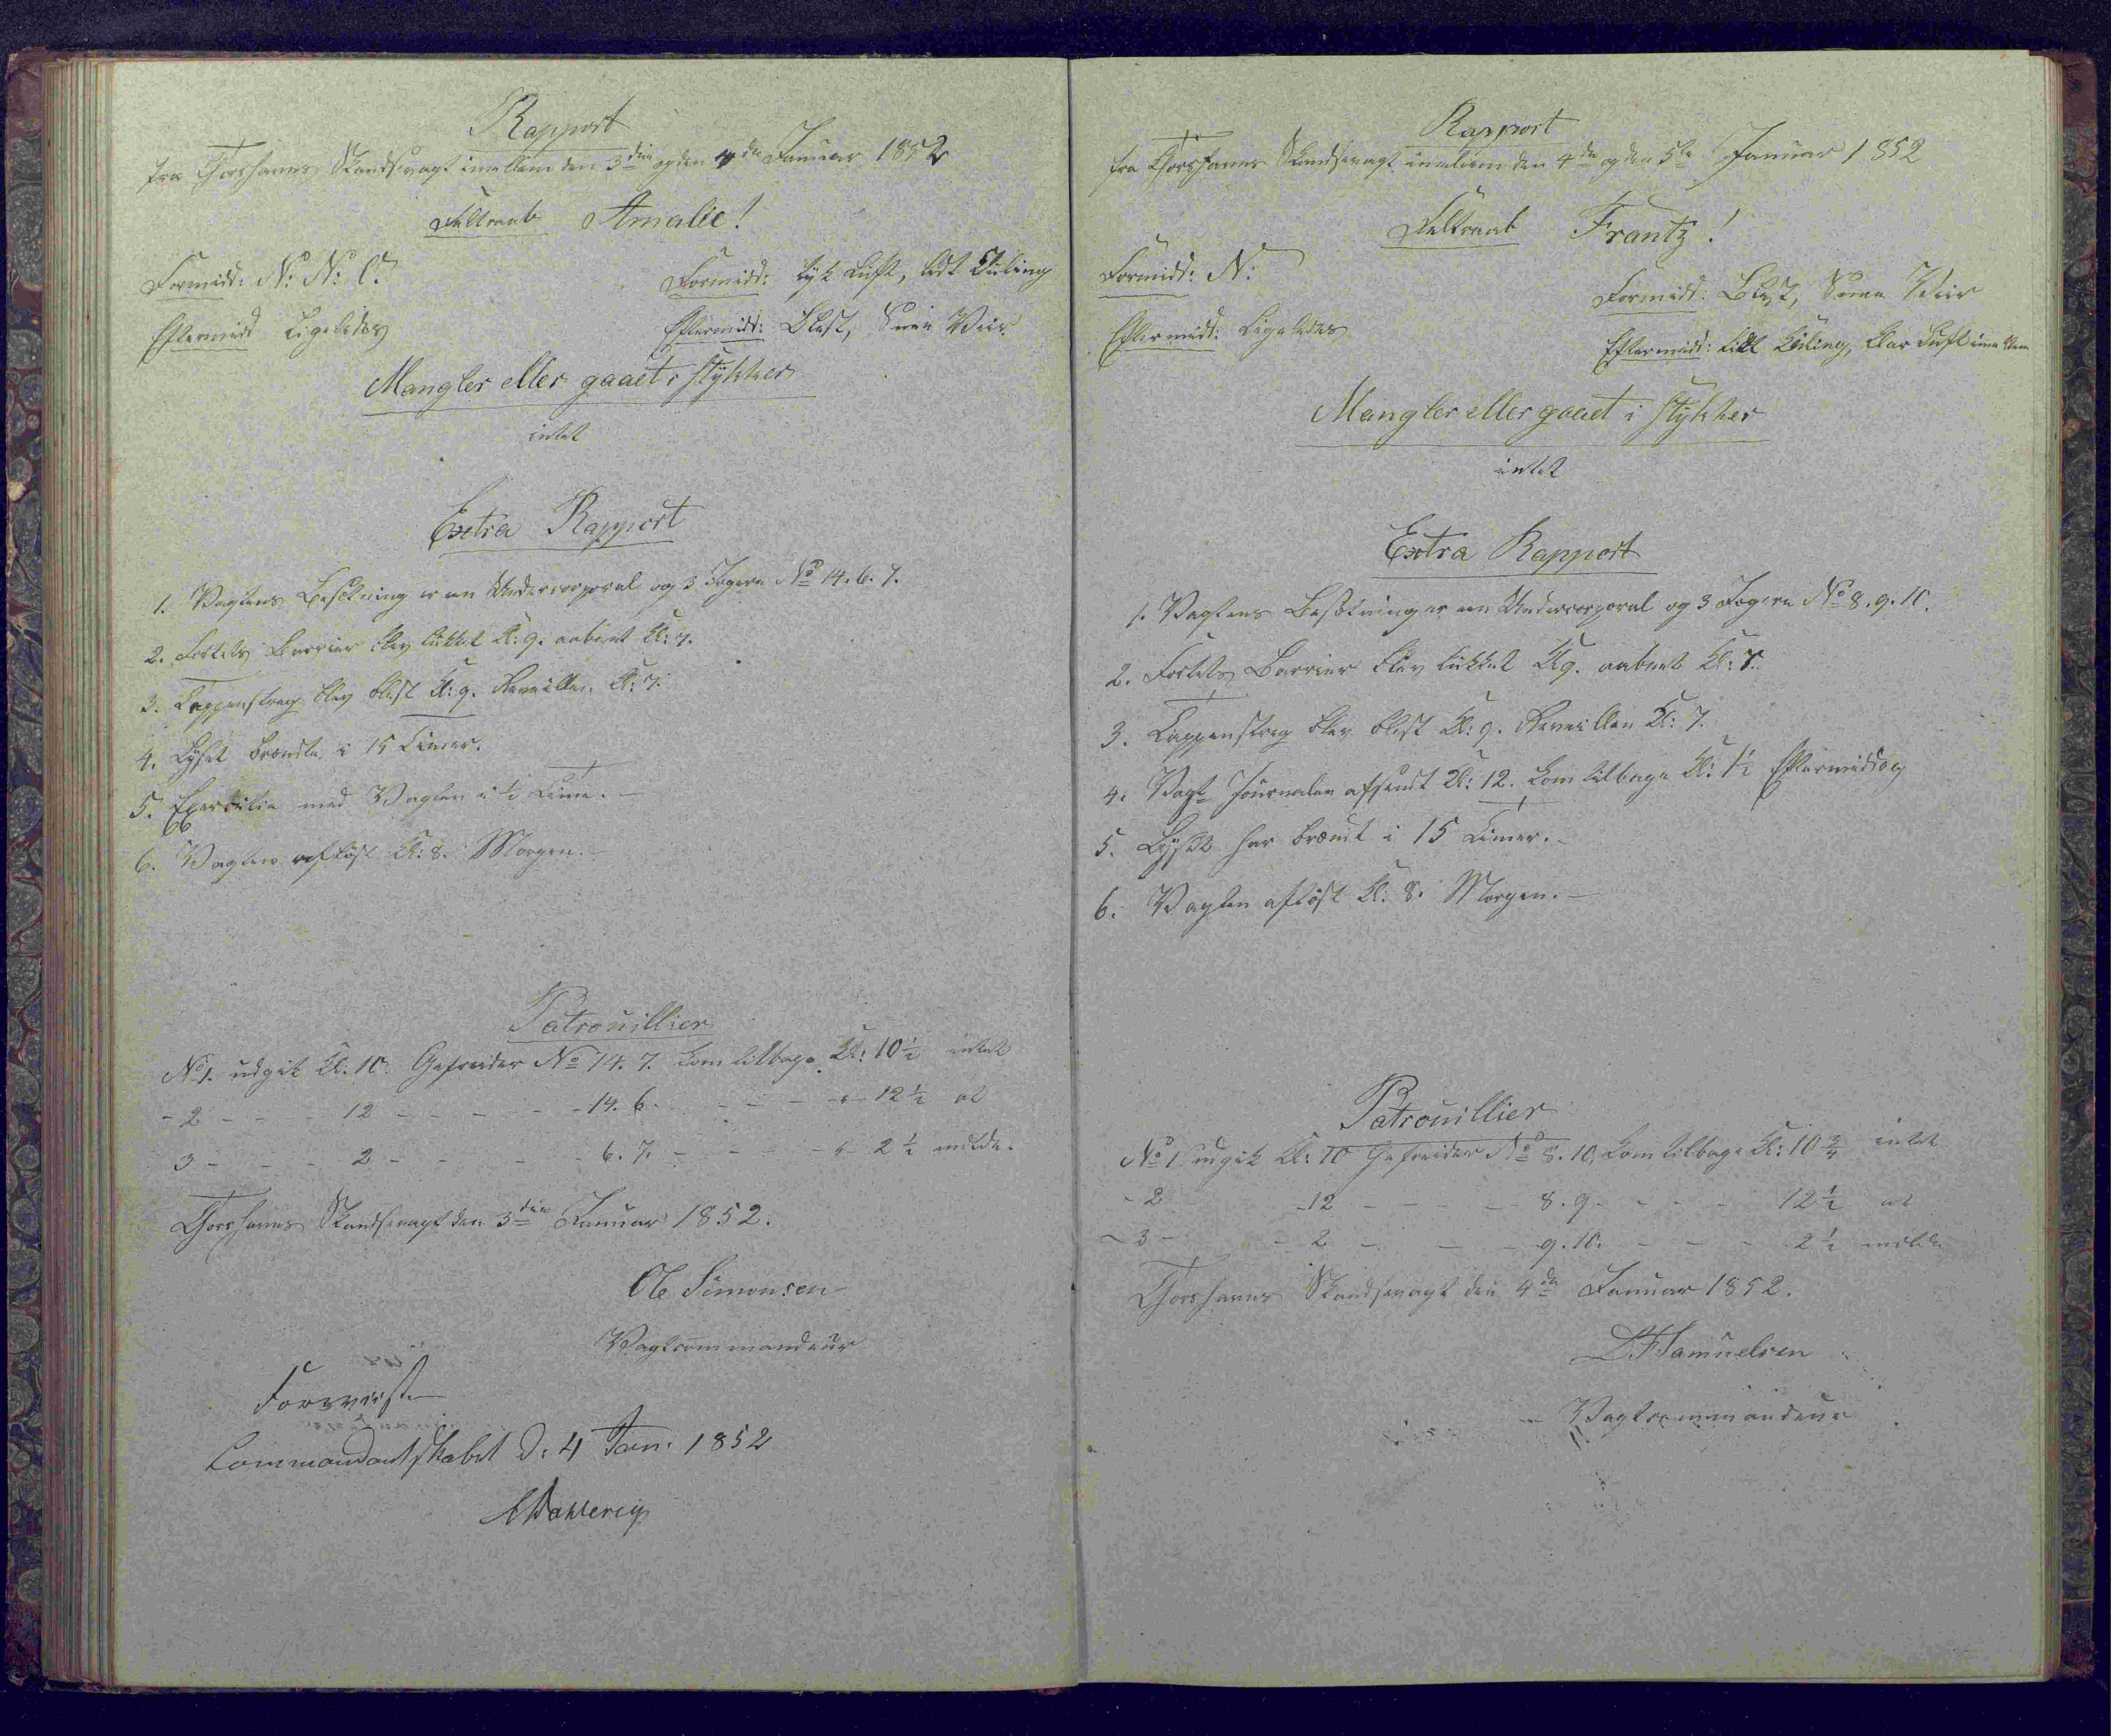 Rapport
fra Thorshavns Skandsevagt imellem den 3die og den 4de Januar 1852
Feltraab Amalie!
Formidd: N: N: O.
Formidd: tyk Luft, lidt Kuling
Eftermidd Ligeledes
Eftermidd: Blæst, Snee Veir
Mangler eller gaaet i stykker
intet
Extra Rapport
1. Vagtens Besætning er en Undercorporal og 3 Jægere No 14. 6. 7.
2. Fortets Barrier blev lukket Kl: 9. aabnet Kl: 7.
3. Tappenstreg blev blæst Kl: 9. Reveillen Kl: 7.
4. Lyset brændte i 15 Timer.
5. Exercitie med Vagten i ½ Time. –
6. Vagten afløst Kl: 8. Morgen. –
Patrouillier
No 1. udgik Kl: 10. Gefreider No 14. 7. kom tilbage Kl: 10½ intet
- 2 - - - 12 - - - - - 14. 6. - - - - - 12½ at
3 - - - 2 - - - - - 6. 7. - - - - - 2½ melde.
Thorshavns Skandsevagt den 3die Januar 1852.
Ole Simonsen
Vagtcommandeur
Forevist
Commandantskabet D: 4 Jan: 1852
Rapport
fra Thorshavns Skandsevagt imellem den 4de og den 5te Januar 1852
Feltraab Frantz!
Formidd: N:
Formidd: Blæst, Snee Veir
Eftermidd: Ligeledes
Eftermidd: lidt Kuling, klar Luft imellem
Mangler eller gaaet i stykker
intet
Extra Rapport
1. Vagtens Besætning er en Undercorporal og 3 Jægere No 8. 9. 10.
2. Fortets Barrier blev lukket Kl 9. aabnet Kl: 7.
3. Tappenstreg blev blæst Kl: 9. Reveillen Kl: 7.
4. Vagt Journalen afsendt Kl: 12. kom tilbage Kl: 1½ Eftermiddag
5. Lyset har brændt i 15 Timer. –
6. Vagten afløst Kl: 8. Morgen. –
Patrouillier
No 1 udgik Kl: 10 Gefreider No 8. 10. kom tilbage Kl: 10¾ intet
- 2 - 12 - - - - 8. 9. - - - - 12½ at
- 3 - - 2 - - - 9. 10. - - - 2½ melde
Thorshavns Skandsevagt den 4de Januar 1852.
Samuelsen
Vagtcommandeur